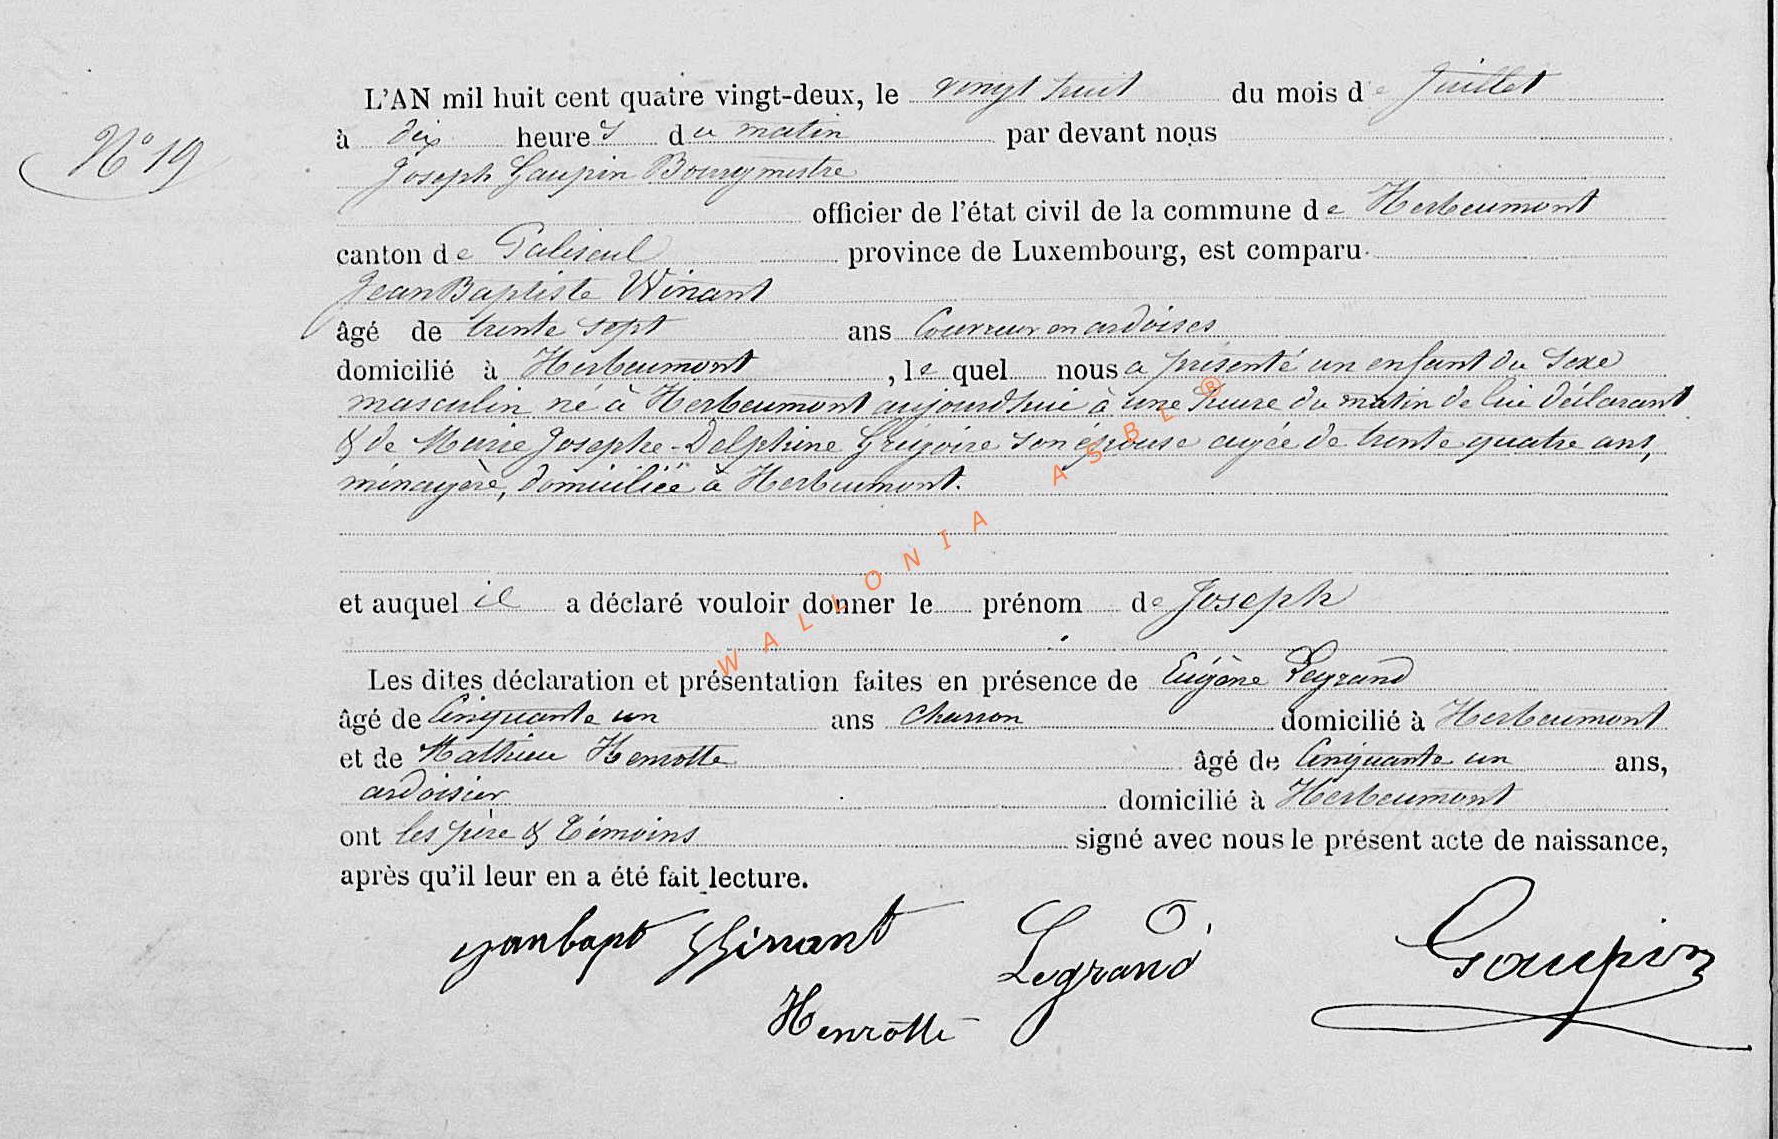 N° 19
L'AN mil huit cent quatre vingt-deux, le vingt huit du mois de Juillet
à dix heures du matin par devant nous
Joseph Gaupin Bourgmestre
officier de l'état civil de la commune de Herbeumont
canton de Paliseul province de Luxembourg, est comparu
Jean Baptiste Winant
âgé de trente sept ans Couvreur en ardoises
domicilié à Herbeumont, le quel nous a présenté un enfant du sexe
masculin né à Herbeumont aujourd'hui à une heure du matin de lui déclarant
& de Marie Josephe-Delphine Grégoire son épouse agée de trente quatre ans,
ménagère, domiciliée à Herbeumont.
et auquel il a déclaré vouloir donner le prénom de Joseph
Les dites déclaration et présentation faites en présence de Eugène Legrand
âgé de Cinquante un ans charron domicilié à Herbeumont
et de Mathieu Henrotte âgé de Cinquante un ans,
ardoisier domicilié à Herbeumont
ont les père & témoins signé avec nous le présent acte de naissance,
après qu'il leur en a été fait lecture.
Janbapt Winant Legrand Gaupin
Henrotte
WALLONIA ASBL ®